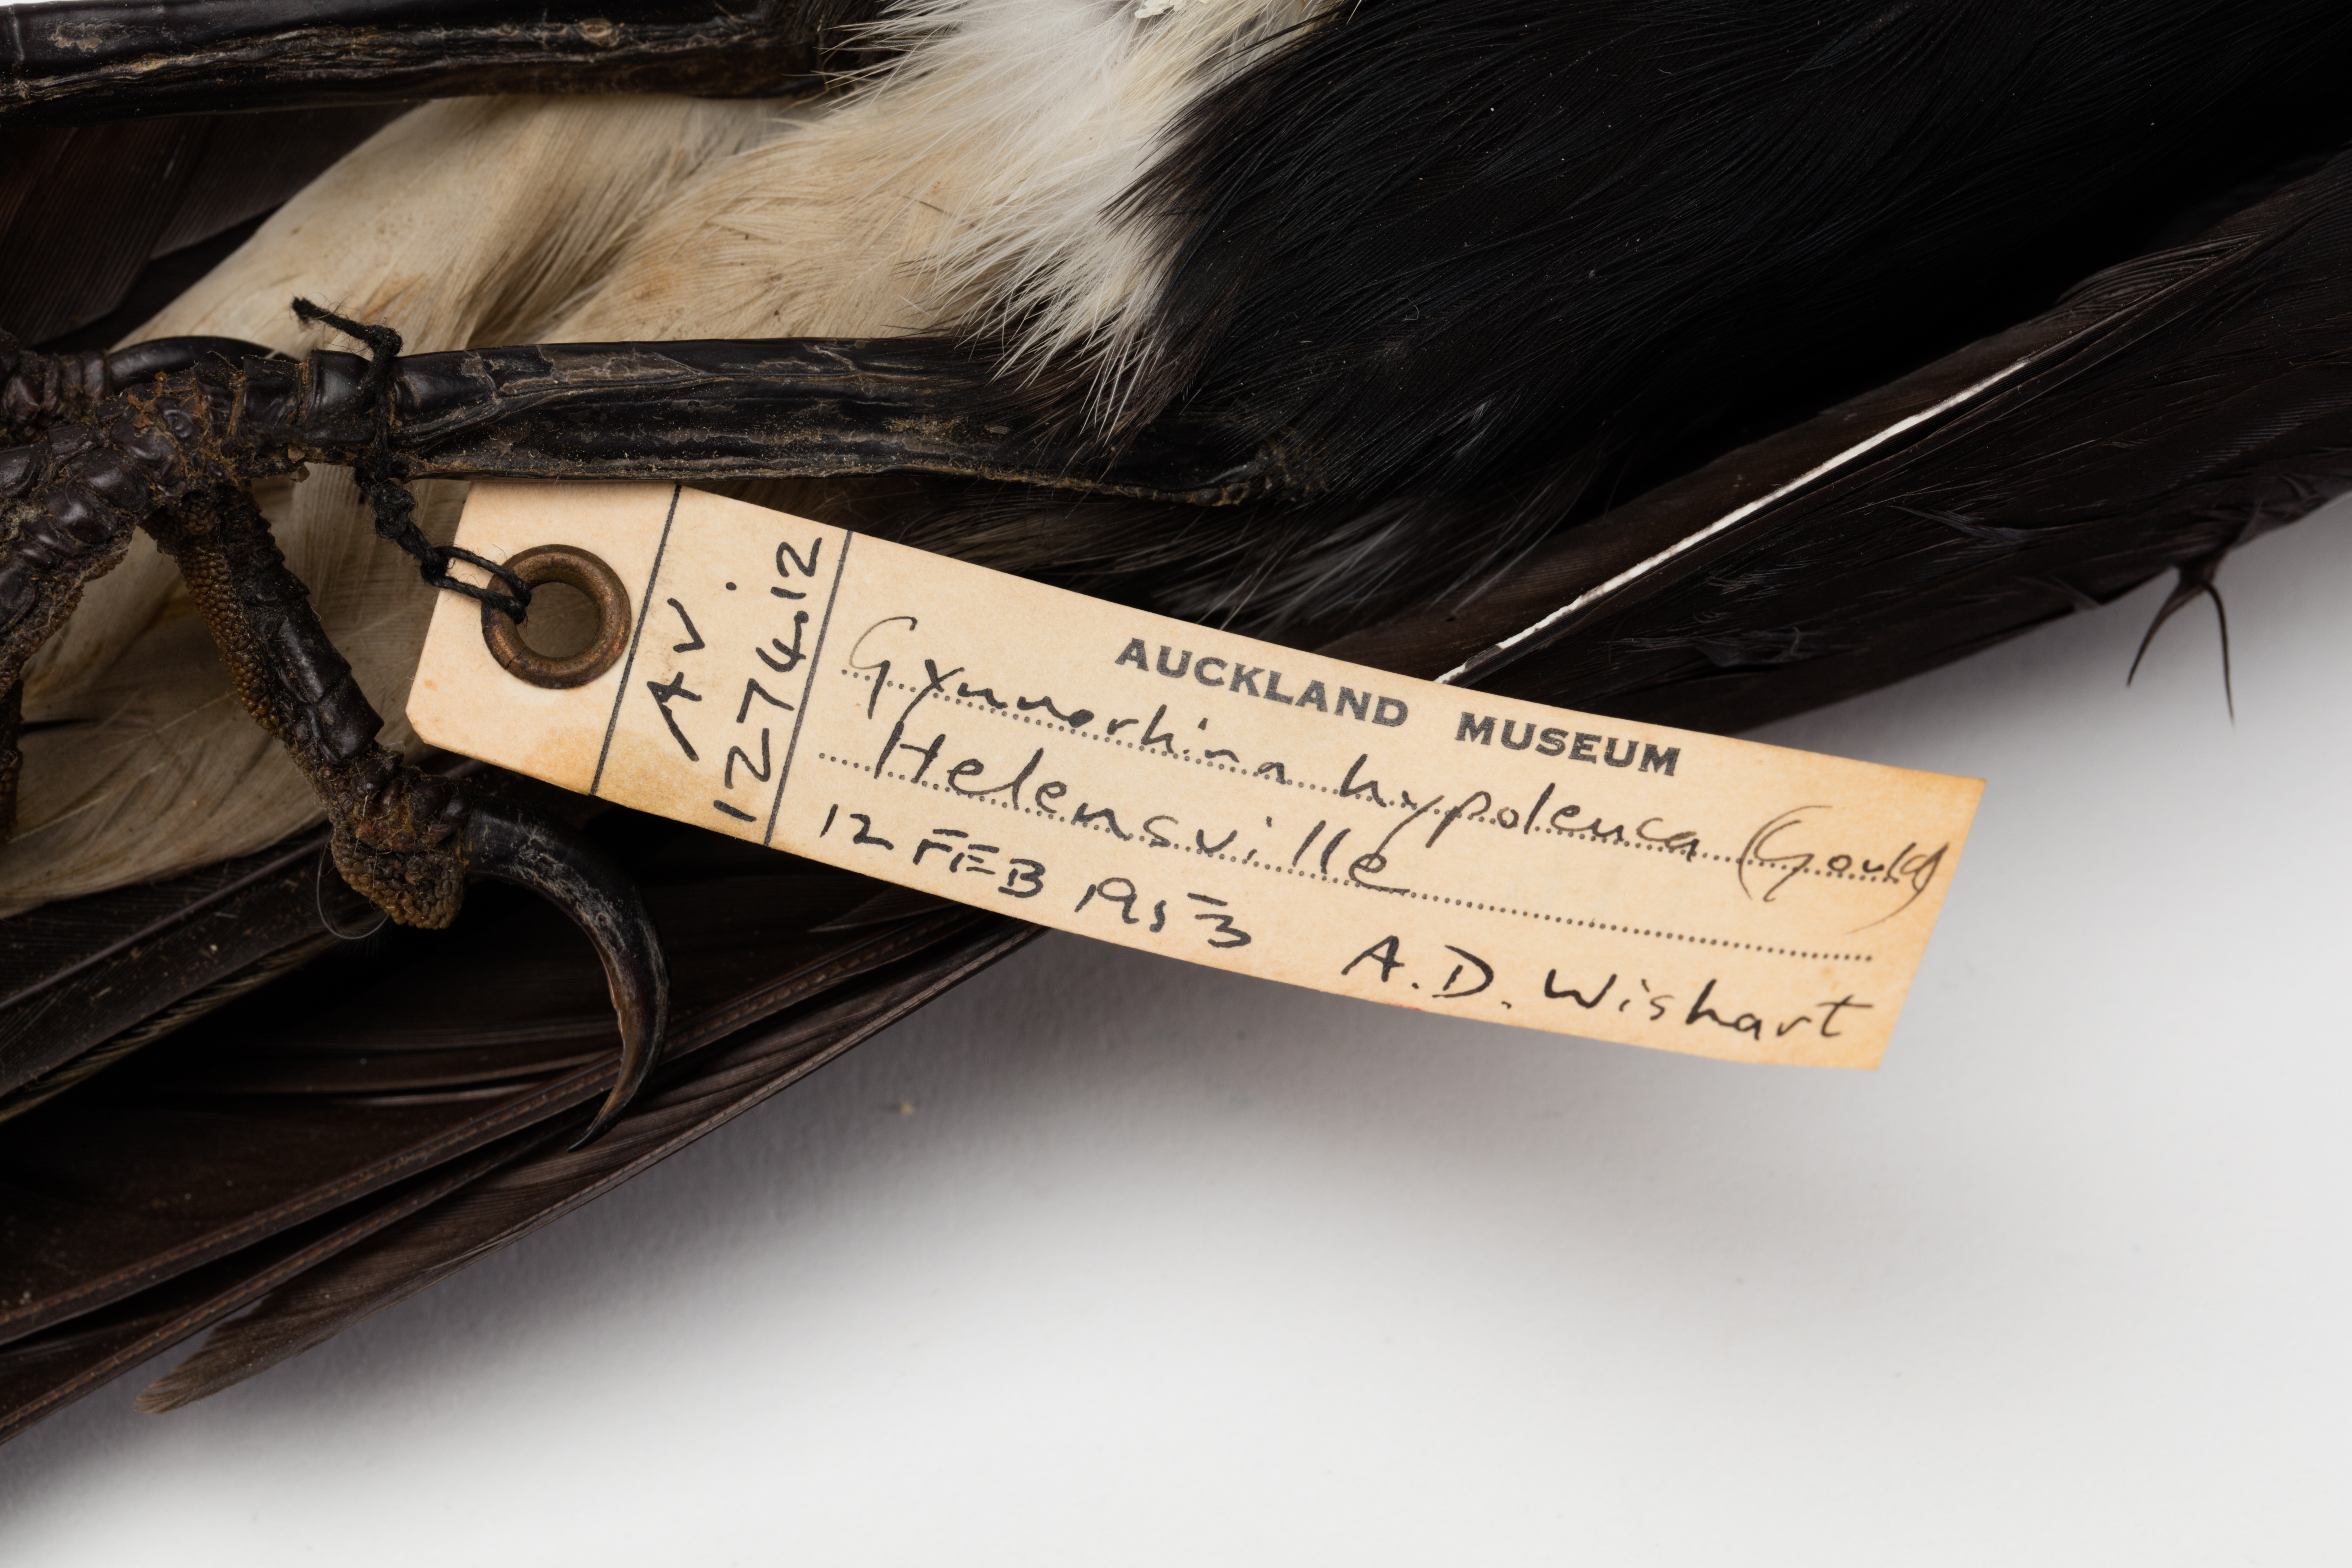 AV.
1274.12
AUCKLAND MUSEUM
Gymnorhina hypoleuca (Gould)
Helensville
12 FEB 1953 A.D. Wishart